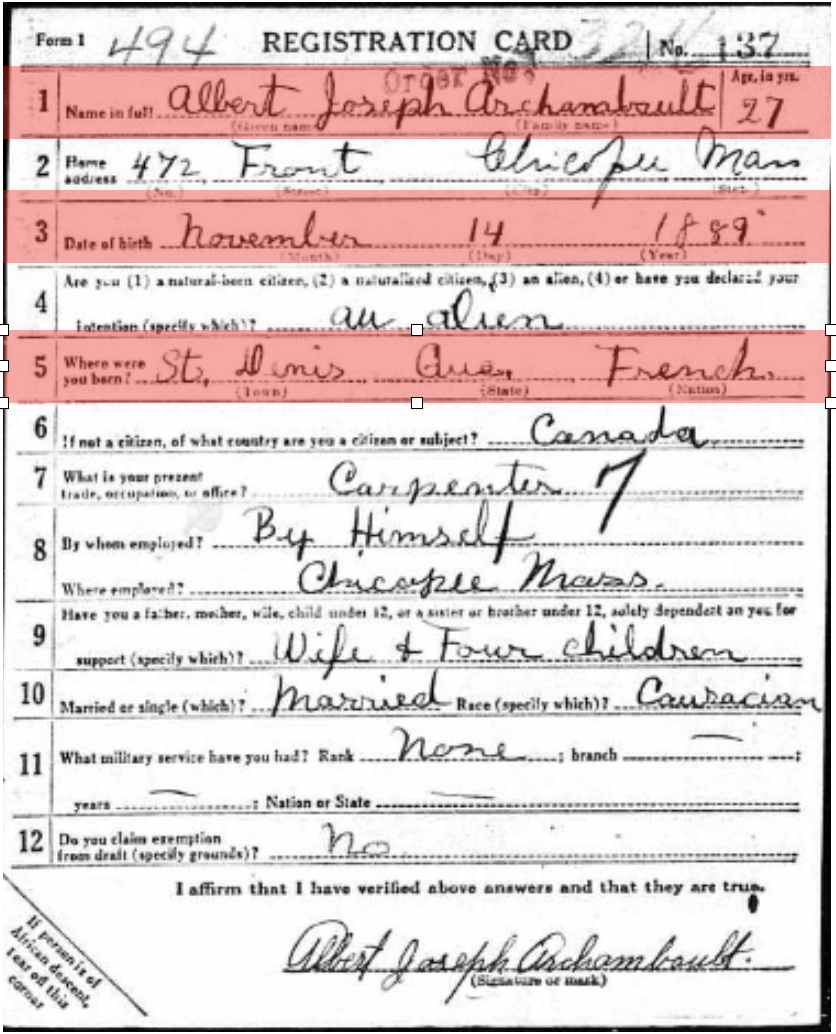 Form 1 494 REGISTRATION CARD No. 137
Order No.
1 Name in full Albert Joseph Archambault Age, in yrs. 27
(Given name) (Family name)
2 Home address 472 Front Chicopee Mass
(No.) (Street) (City) (State)
3 Date of birth November 14 1889
(Month) (Day) (Year)
Are you (1) a natural-born citizen, (2) a naturalized citizen, (3) an alien, (4) or have you declared your
4 intention (specify which)? an alien
5 Where were you born? St. Denis Que. French
(Town) (State) (Nation)
6 If not a citizen, of what country are you a citizen or subject? Canada
7 What is your present
trade, occupation, or office? Carpenter 7
8 By whom employed? By Himself
Where employed? Chicopee Mass.
Have you a father, mother, wife, child under 12, or a sister or brother under 12, solely dependent on you for
9 support (specify which)? Wife + Four children
10 Married or single (which)? Married Race (specify which)? Causacian
11 What military service have you had? Rank None ; branch — ;
years — ; Nation or State —
12 Do you claim exemption
from draft (specify grounds)? No
I affirm that I have verified above answers and that they are true.
Albert Joseph Archambault.
(Signature or mark)
If person is of
African descent,
tear off this
corner